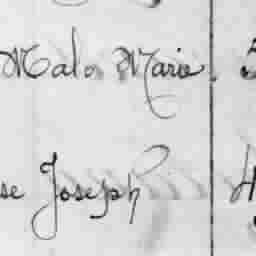 Malo Marie.
se Joseph